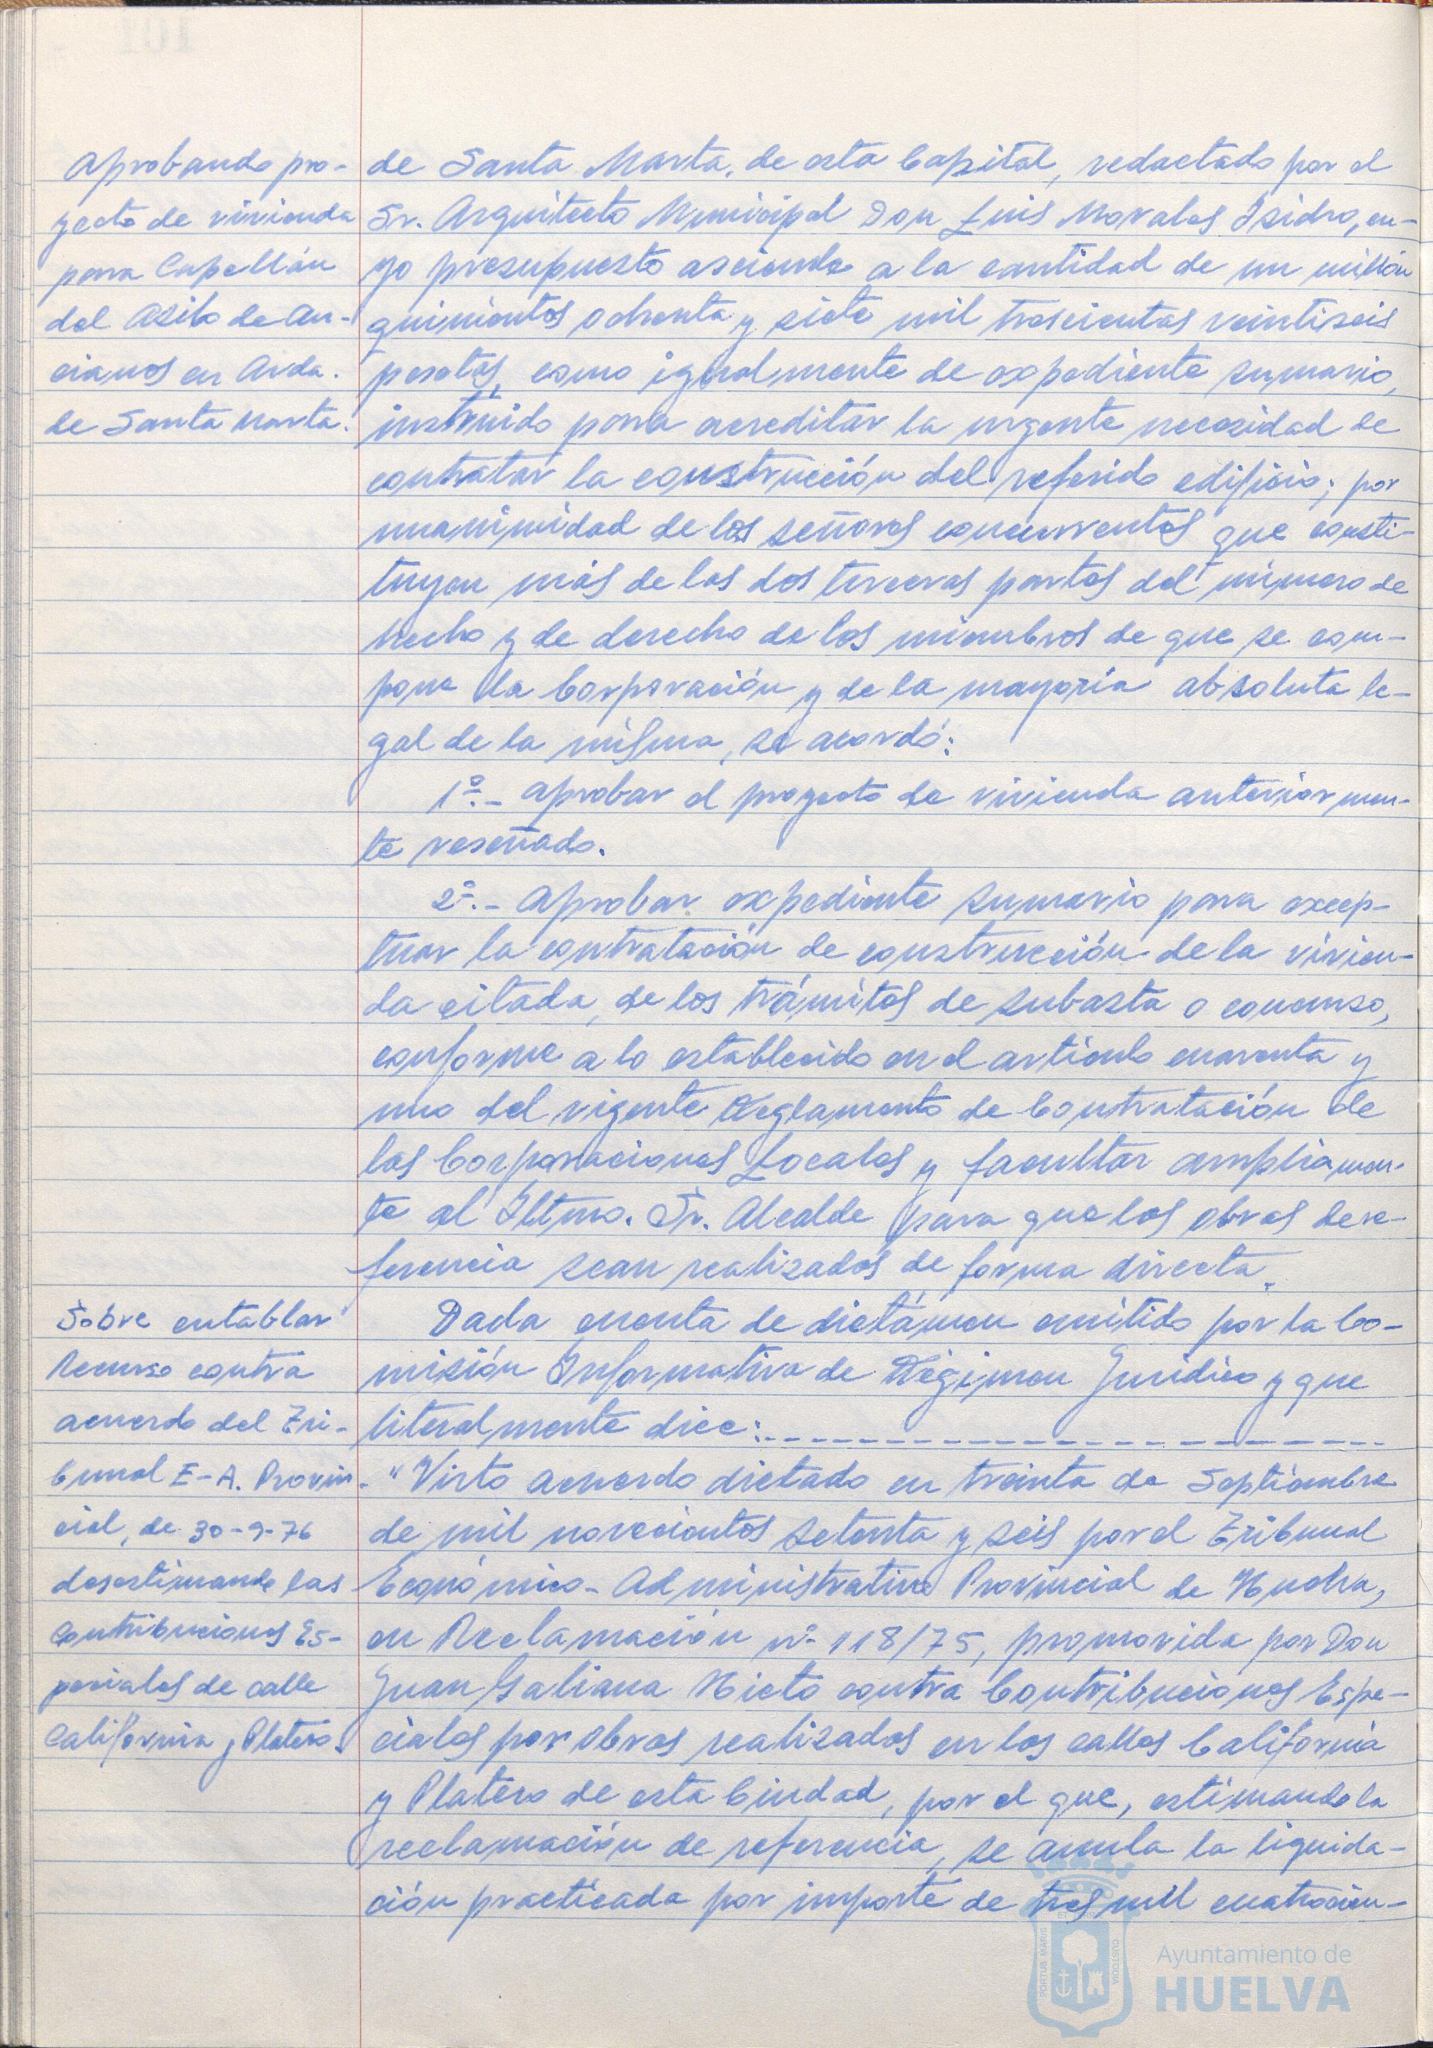 Aprobando pro-
yecto de vivienda
para Capellán
del Asilo de An-
cianos en Avda.
de Santa Marta.
de Santa Marta, de esta Capital, redactado por el
Sr. Arquitecto Municipal Don Luis Morales Isidro, cu-
yo presupuesto asciende a la cantidad de un millón
quinientos ochenta y siete mil trescientas veintiseis
pesetas, como igualmente de expediente sumario,
instruido para acreditar la urgente necesidad de
contratar la construcción del referido edificio; por
unanimidad de los señores concurrentes que consti-
tuyen más de las dos terceras partes del número de
hecho y de derecho de los miembros de que se com-
pone la Corporación y de la mayoría absoluta le-
gal de la misma, se acordó:
1º.- Aprobar el proyecto de vivienda anteriormen-
te reseñado.
2º.- Aprobar expediente sumario para excep-
tuar la contratación de construcción de la vivien-
da citada, de los trámites de subasta o concurso,
conforme a lo establecido en el artículo cuarenta y
uno del vigente Reglamento de Contratación de
las Corporaciones Locales y facultar ampliamen-
te al Iltmo. Sr. Alcalde para que las obras de re-
ferencia sean realizadas de forma directa.
Sobre entablar
Recurso contra
acuerdo del Tri-
bunal E-A. Provin-
cial, de 30-9-76
desestimando las
Contribuciones Es-
peciales de calle
California y Platero.
Dada cuenta de dictámen emitido por la Co-
misión Informativa de Régimen Jurídico y que
literalmente dice:
"Visto acuerdo dictado en treinta de Septiembre
de mil novecientos setenta y seis por el Tribunal
Económico-Administrativo Provincial de Huelva,
en Reclamación nº 118/75, promovida por Don
Juan Galiana Nieto contra Contribuciones Espe-
ciales por obras realizadas en las calles California
y Platero de esta Ciudad, por el que, estimando la
reclamación de referencia, se anula la liquida-
ción practicada por importe de tres mil cuatrocien-
Ayuntamiento de
HUELVA